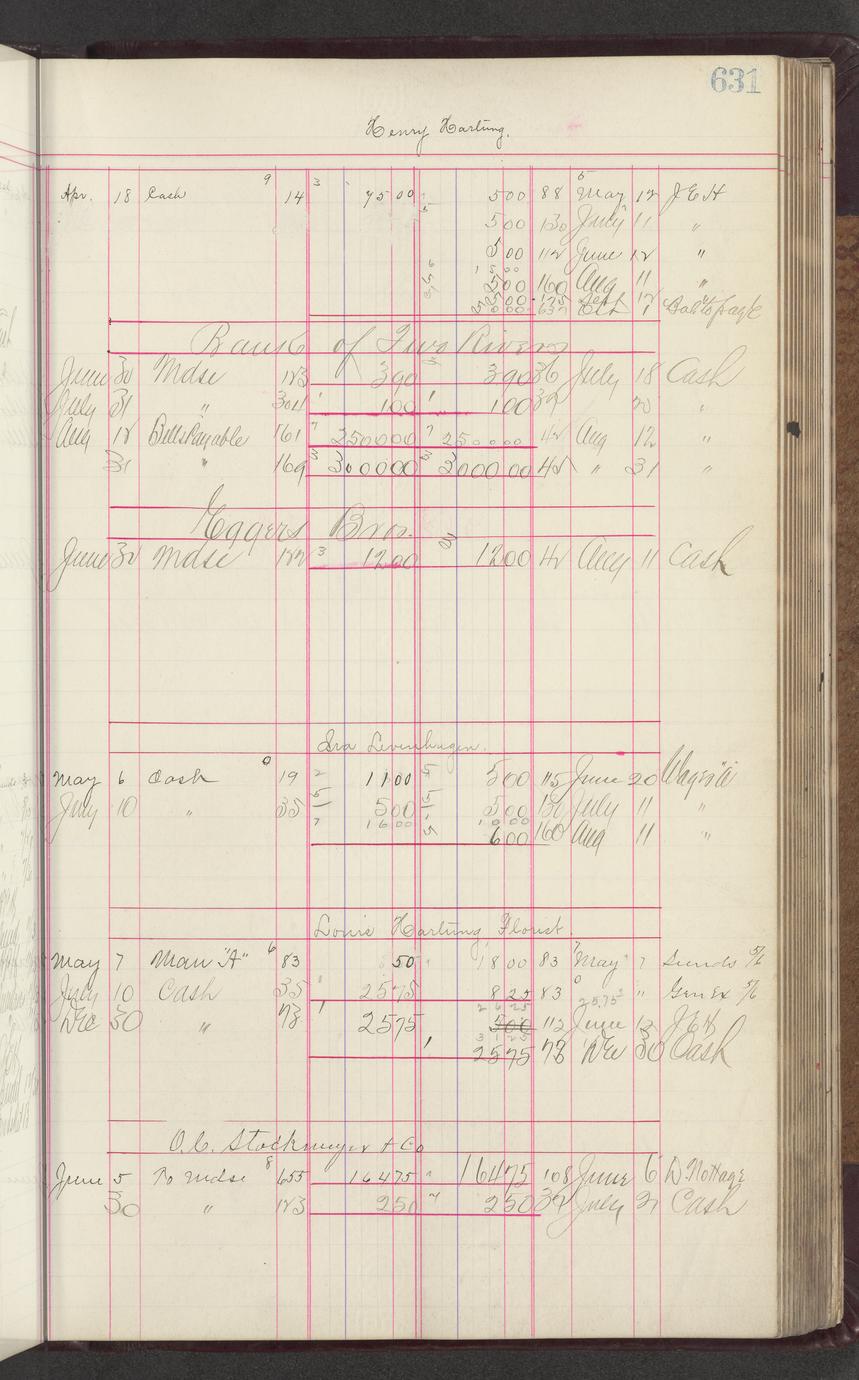 631
Henry Hartung.
Apr. 18 Cash 9 14 3 75 00 5 00 88 May 12 J E H
5 00 130 July 11 "
5 00 112 June 12 "
5 00 160 Aug 11 "
Sept 12
637 Oct 1 Bal to page
Bank of Two Rivers
June 30 Mdse 183 3 90 3 90 36 July 18 Cash
July 31 " 304 1 00 1 00 37 20 "
Aug 12 Bills Payable 161 7 2500 00 7 2500 00 42 Aug 12 "
31 " 169 3 3000 00 3 3000 00 45 " 31 "
Eggers Bros.
June 30 Mdse 182 3 12 00 3 12 00 42 Aug 11 Cash
Ira Levenhagen.
May 6 Cash 0 19 2 11 00 5 5 00 115 June 20 Wages "A"
July 10 " 35 5 00 5 00 130 July 11 "
7 16 00 6 00 160 Aug 11 "
Louis Hartung Florist.
May 7 Man "A" 6 83 50 18 00 83 May 7 Sunds 5/6
July 10 Cash 35 25 75 8 25 83 " Gen Ex 5/6
Dec 30 " 73 1 25 75 5 00 112 June 12 J E H
25 75 73 Dec 30 Cash
O. C. Stockmeyer & Co
June 5 To Mdse 8 655 164 75 164 75 108 June 6 W. Nottage
30 " 183 2 50 2 50 39 July 21 Cash